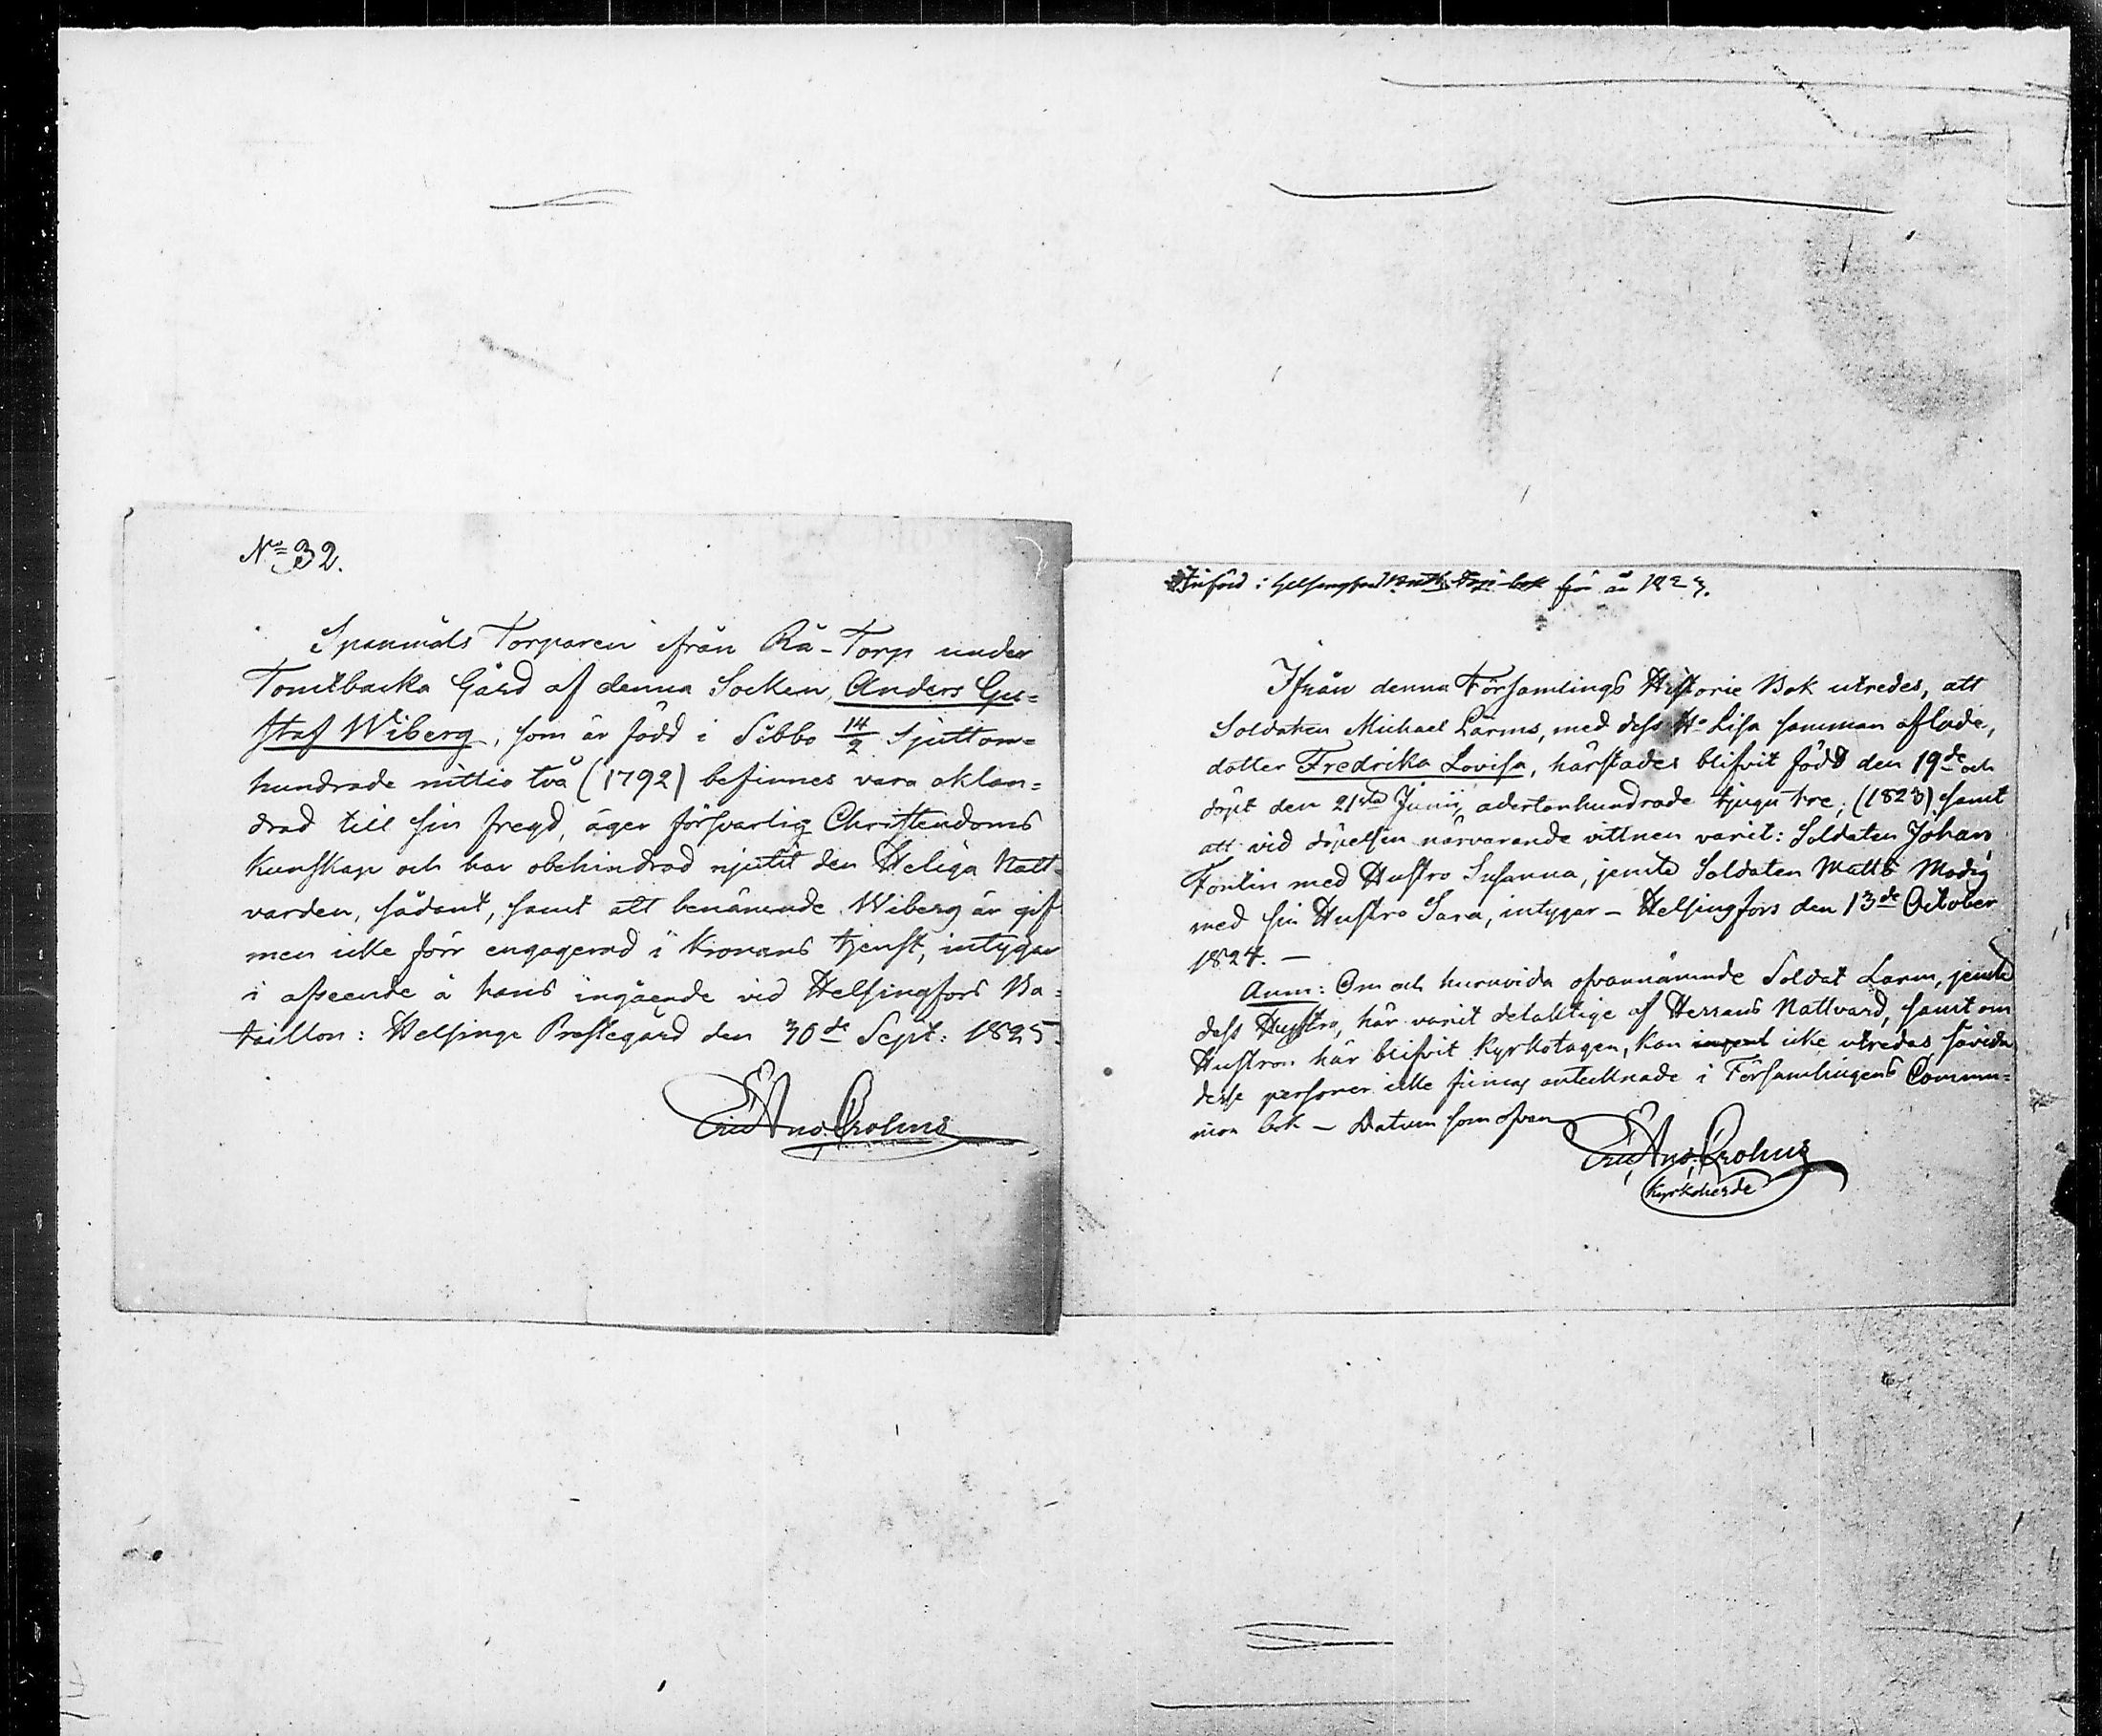 No 32.
Spanmåls Torparen ifrån Rå-Torp under
Tomtbacka Gård af denna Socken, Anders Gu=
staf Wiberg, som är född i Sibbo 14/2 Sjutton=
hundrade nittio två (1792) befinnes vara oklan=
drad till sin fregd, äger försvarlig Christendoms
kunskap och har obehindrad njutit den Heliga Natt-
varden, sådant, samt att benämnde Wiberg är gift
men icke förr engagerad i Kronans tjenst, intygar
i afseende å hans ingående vid Helsingfors Ba=
taillon: Helsinge Prestegård den 30de Sept: 1825.
Eric And. Crohns
Införd i Helsingfors för år 1823.
Ifrån denna Församlings Historie Bok utredes, att
Soldaten Michael Larms, med dess Ho Lisa samman aflade,
dotter Fredrika Lovisa, härstädes blifvit född den 19de och
döpt den 21sta Junii adertonhundrade tjugu tre; (1823) samt
att vid döpelsen närvarande vittnen varit: Soldaten Johan
Fontin med Hustro Susanna, jemte Soldaten Matts Modig
med sin Hustro Sara, intygar – Helsingfors den 13de October
1824. –
Anm: Om och huruvida ofvannämnde Soldat Larm, jemte
dess Hustro, här varit delaktige af Herrans Nattvard, samt om
Hustron här blifvit kyrkotagen, kan icke utredas såvida
desse personer icke finnas antecknade i Församlingens Commu=
nion bok – Datum som ofvan
Eric And. Crohns
Kyrkoherde